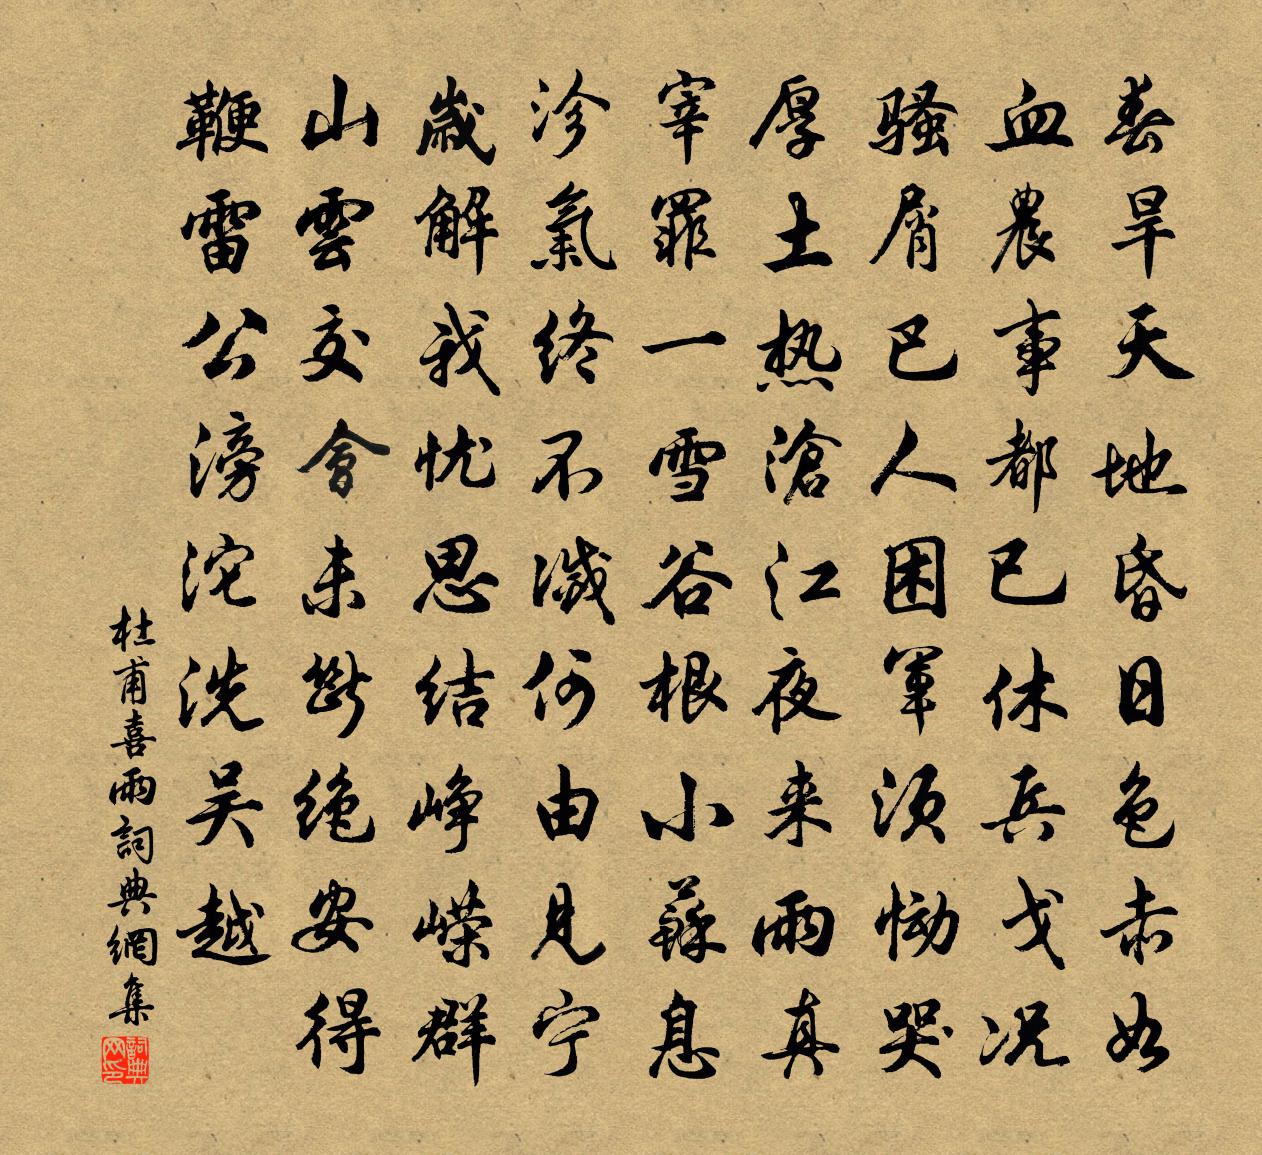 春旱天地昏日色赤如
血農事都已休兵戈况
騷屑巴人困軍須慟哭
厚土热滄江夜来雨真
宰罪一雪谷根小蘇息
沴氣终不滅何由見宁
歲解我忧思结峥嵘群
山雲交會未斷绝安得
鞭雷公滂沱洗吴越
杜甫喜雨詞典網集
詞典网印